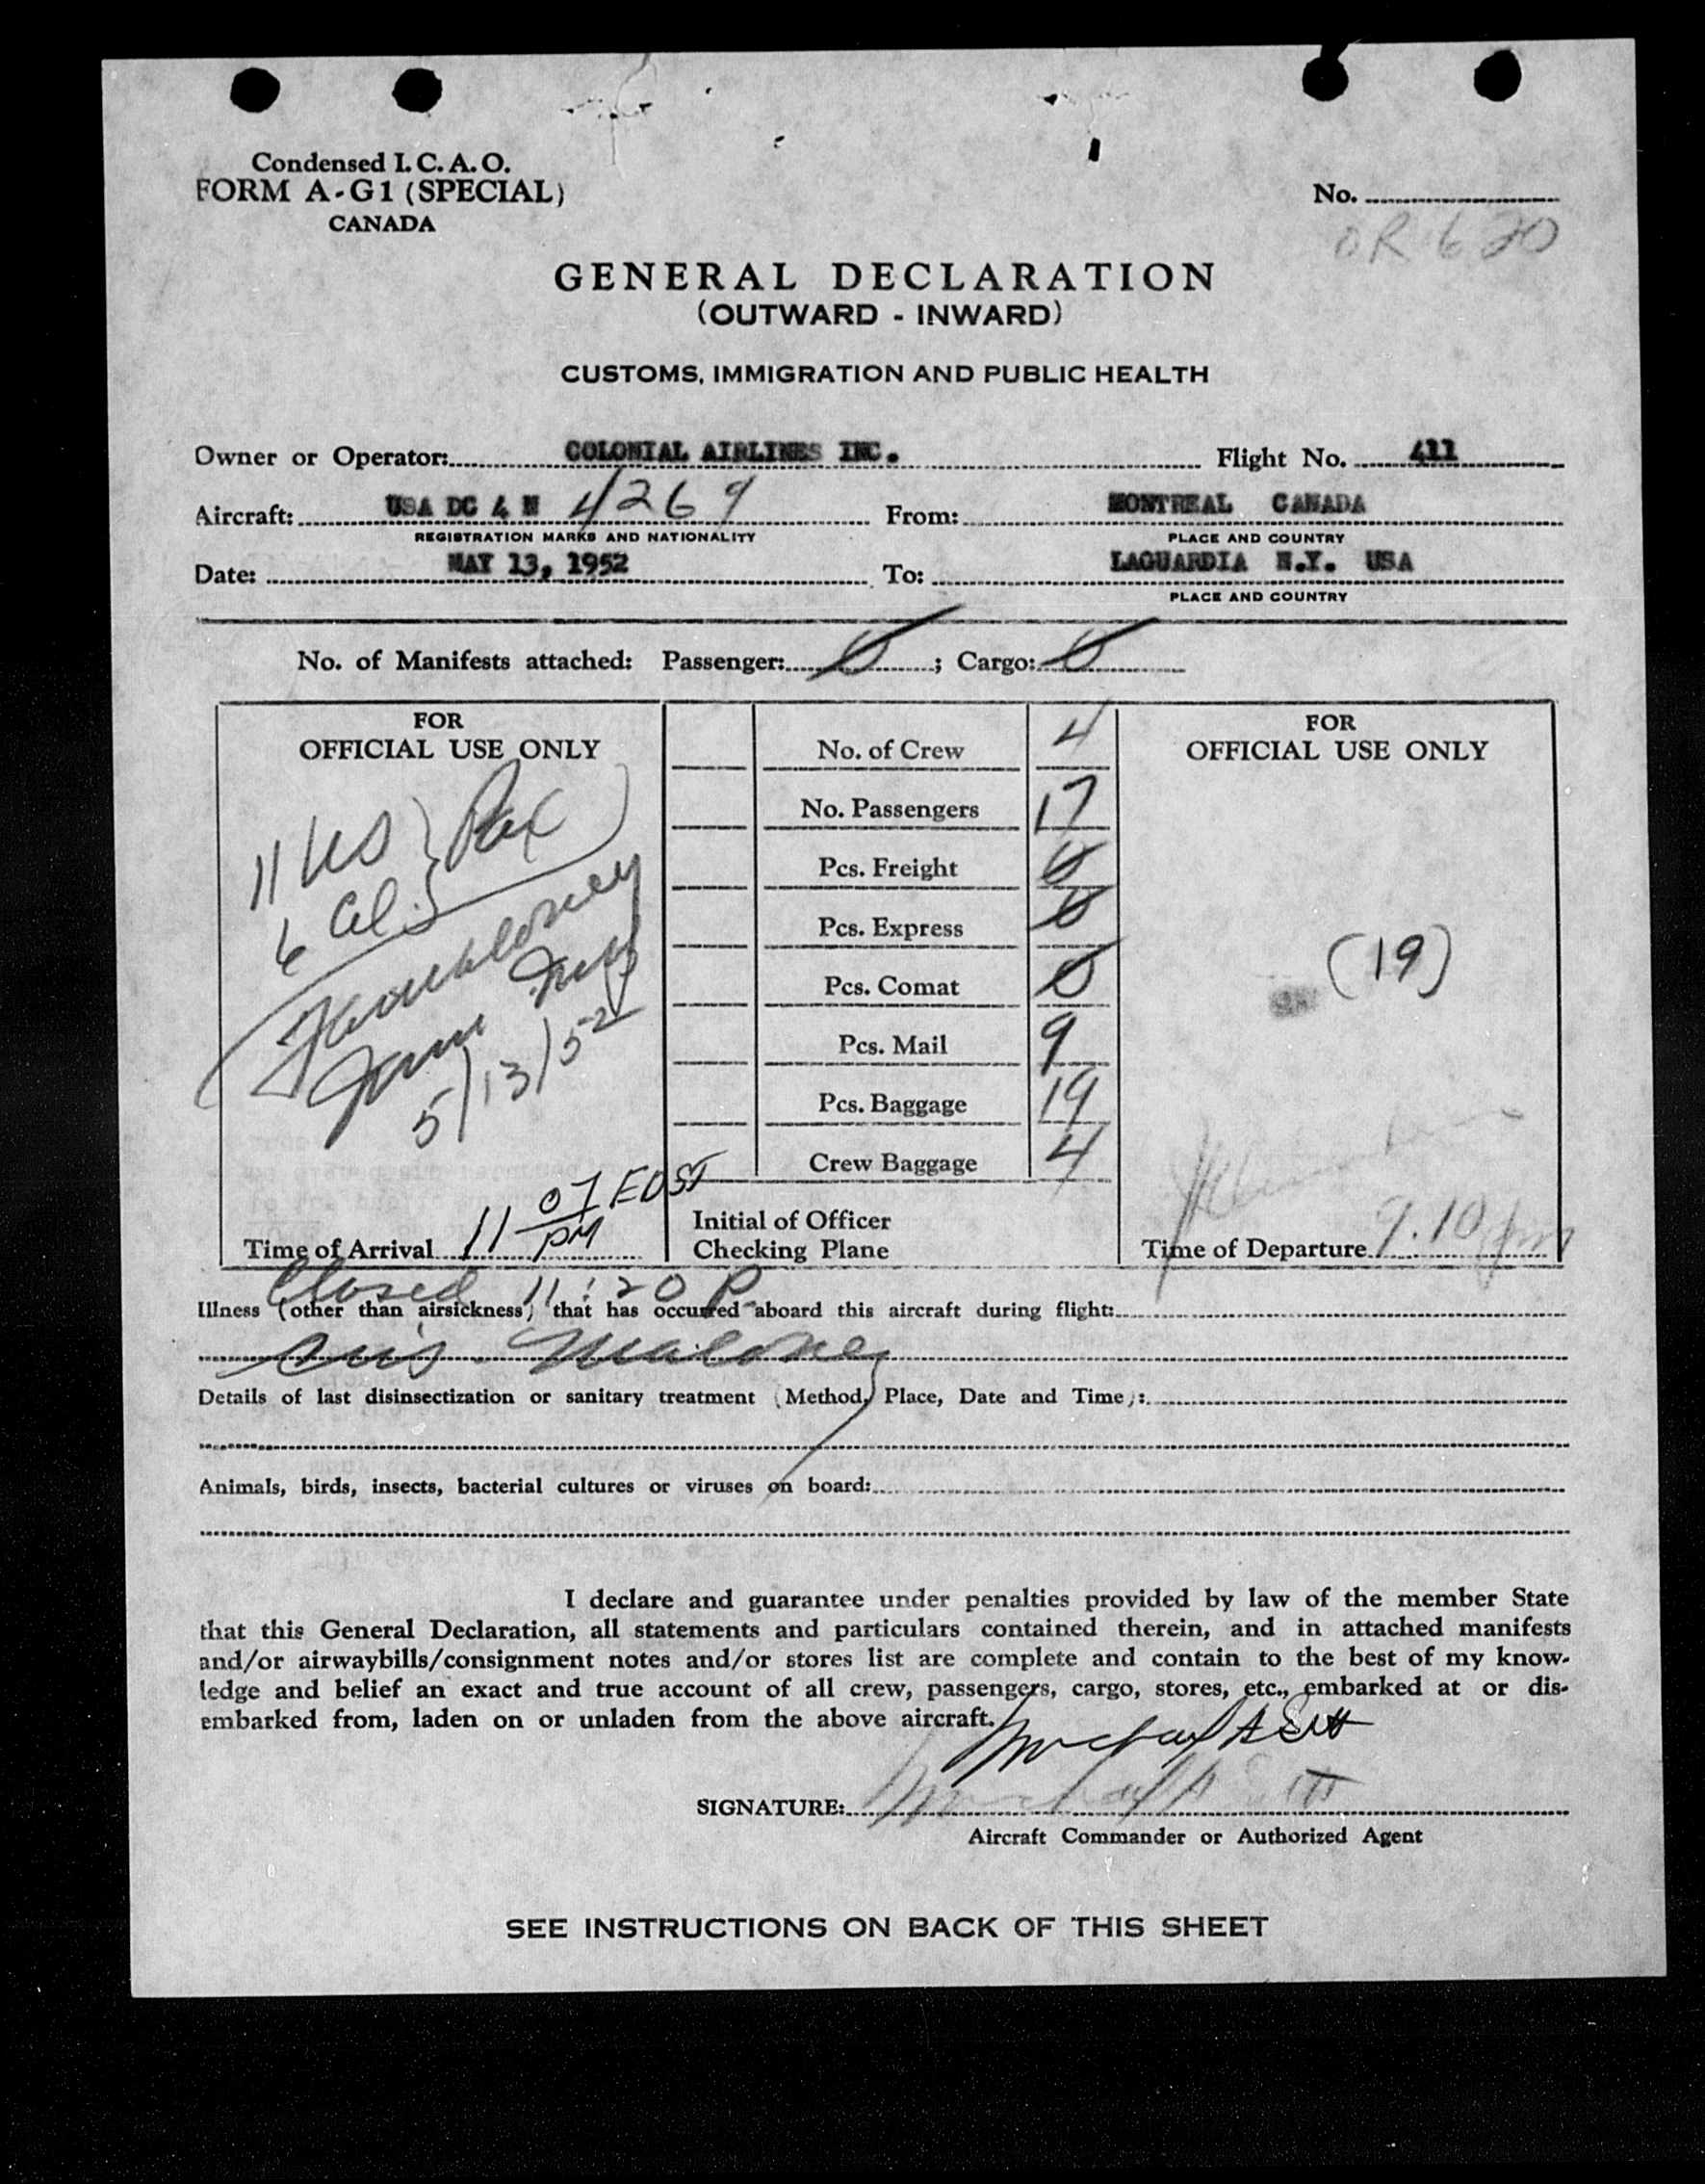 Condensed I.C.A.O.
FORM A-G1 (SPECIAL)
CANADA
No.
OR 620
GENERAL DECLARATION
(OUTWARD - INWARD)
CUSTOMS, IMMIGRATION AND PUBLIC HEALTH
Owner or Operator: COLONIAL AIRLINES INC. Flight No. 411
Aircraft: USA DC 4 N 4269 From: MONTREAL CANADA
REGISTRATION MARKS AND NATIONALITY PLACE AND COUNTRY
Date: MAY 13, 1952 To: LAGUARDIA N.Y. USA
PLACE AND COUNTRY
No. of Manifests attached: Passenger: 0; Cargo: 0
FOR
OFFICIAL USE ONLY
11 US } Pax
6 Al.
5/13/52
Time of Arrival 11 07 PM EDST
No. of Crew 4
No. Passengers 17
Pcs. Freight 0
Pcs. Express 0
Pcs. Comat 0
Pcs. Mail 9
Pcs. Baggage 19
Crew Baggage 4
Initial of Officer
Checking Plane
FOR
OFFICIAL USE ONLY
(19)
Time of Departure 9.10 pm
Closed 11:20 P
Illness (other than airsickness) that has occurred aboard this aircraft during flight:
Maloney
Details of last disinsectization or sanitary treatment (Method, Place, Date and Time):
Animals, birds, insects, bacterial cultures or viruses on board:
I declare and guarantee under penalties provided by law of the member State
that this General Declaration, all statements and particulars contained therein, and in attached manifests
and/or airwaybills/consignment notes and/or stores list are complete and contain to the best of my know-
ledge and belief an exact and true account of all crew, passengers, cargo, stores, etc., embarked at or dis-
embarked from, laden on or unladen from the above aircraft.
SIGNATURE:
Aircraft Commander or Authorized Agent
SEE INSTRUCTIONS ON BACK OF THIS SHEET